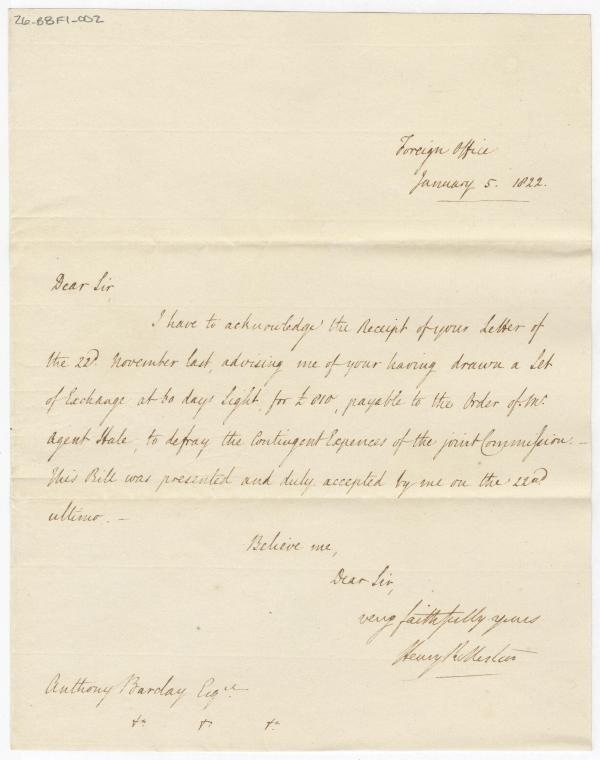 26-BBF1-002
Foreign Office
January 5. 1822.
Dear Sir,
I have to acknowledge the Receipt of your Letter of
the 22d. November last, advising me of your having drawn a Set
of Exchange at 60 days Sight, for £ 810, payable to the Order of Mr.
Agent Hale, to defray the Contingent Expences of the joint Commission. –
This Bill was presented and duly accepted by me on the 22nd
ultimo. –
Believe me,
Dear Sir,
very faithfully yours
Henry
Anthony Barclay Esqre.
&c &c &c